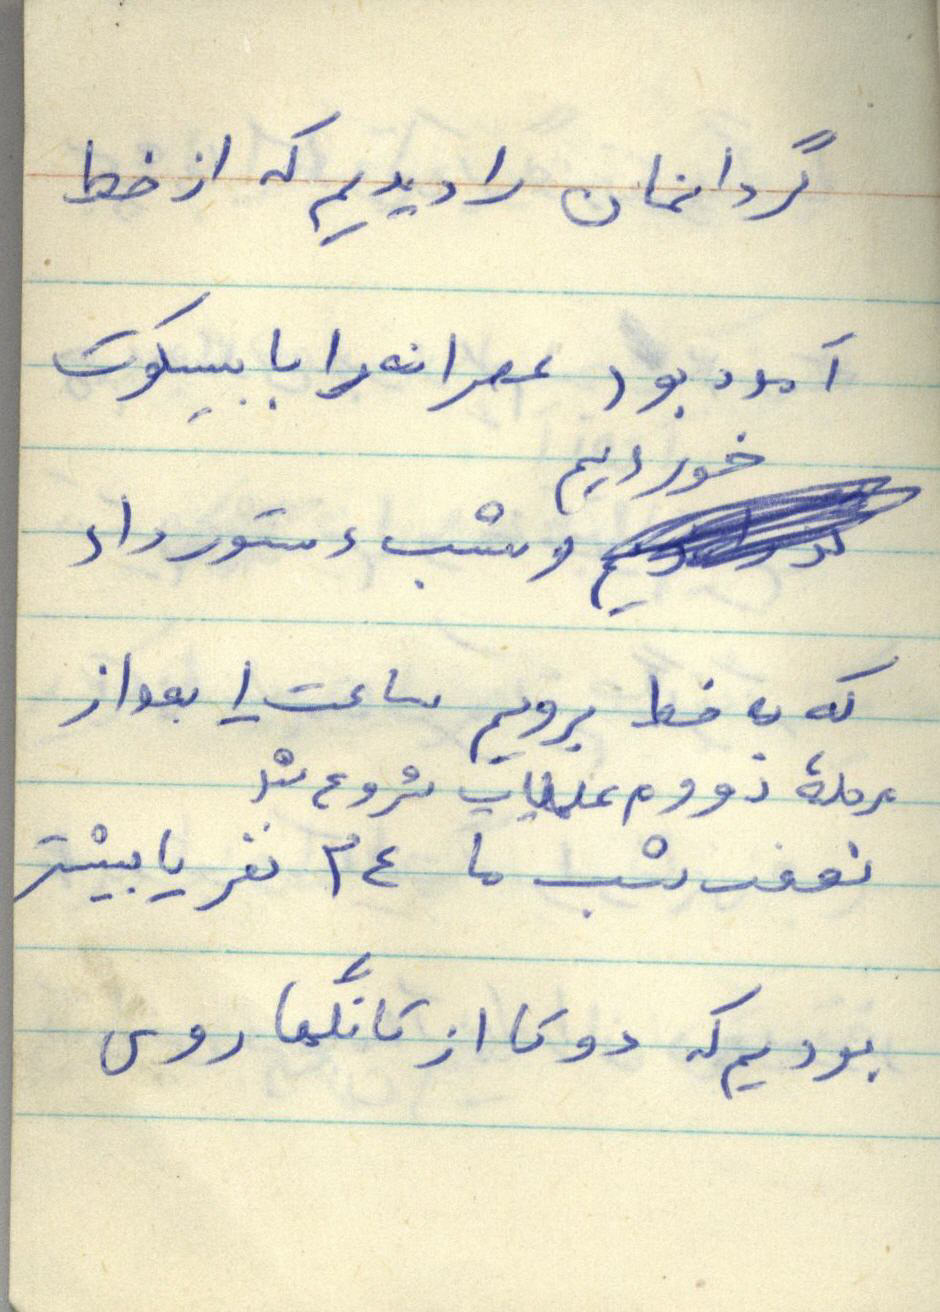 گردانمان را دیدیم که از خط
آمده بود عصرانه را با بیسکوت
خوردیم
و شب دستور داد
که به خط برویم ساعت ۱ بعد از
مرحلهٔ دووم عملیات شروع شد
نصف شب ما ۳۴ نفر یا بیشتر
بودیم که دو تا از تانگها روسی